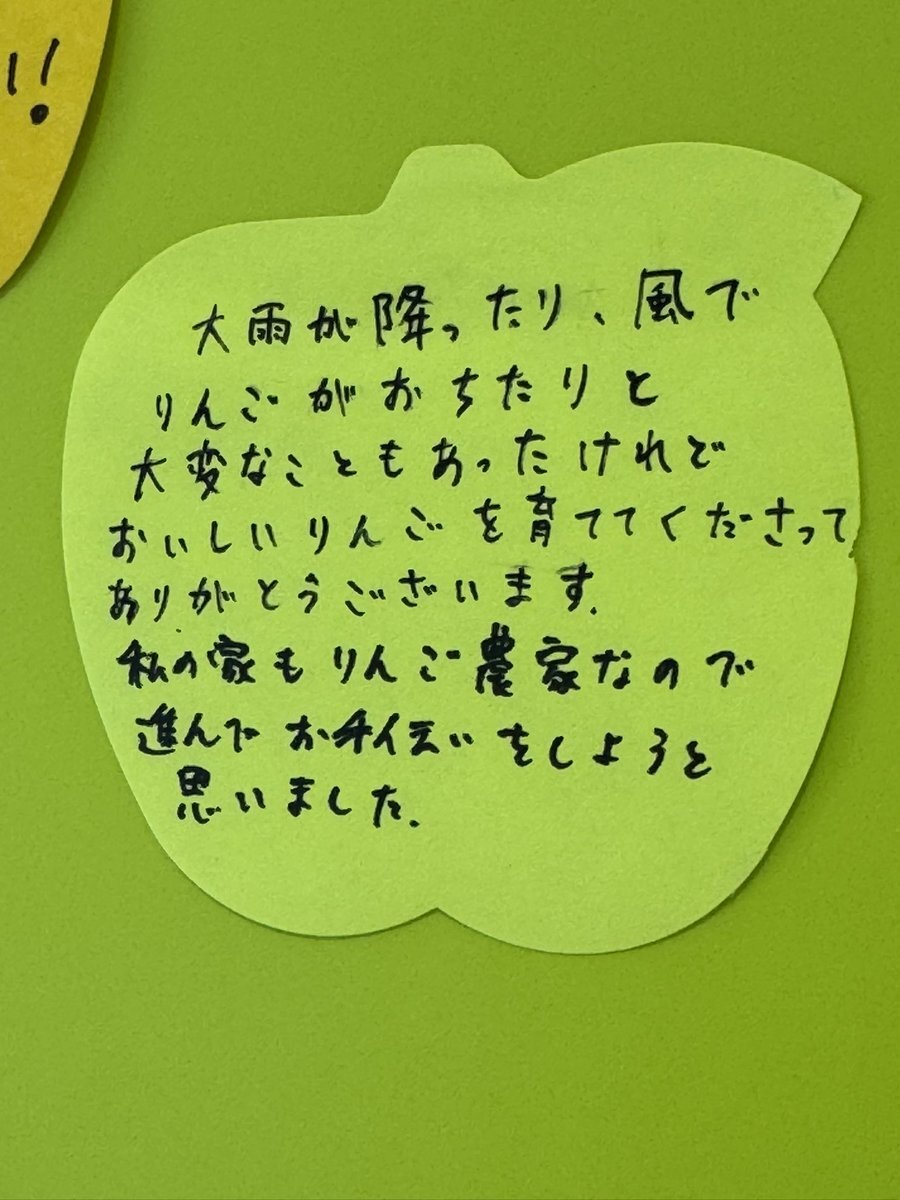 !!
大雨が降ったり、風で
りんごがおちたりと
大変なこともあったけれど
おいしいりんごを育ててくださって
ありがとうございます.
私の家もりんご農家なので
進んでお手伝いをしようと
思いました.